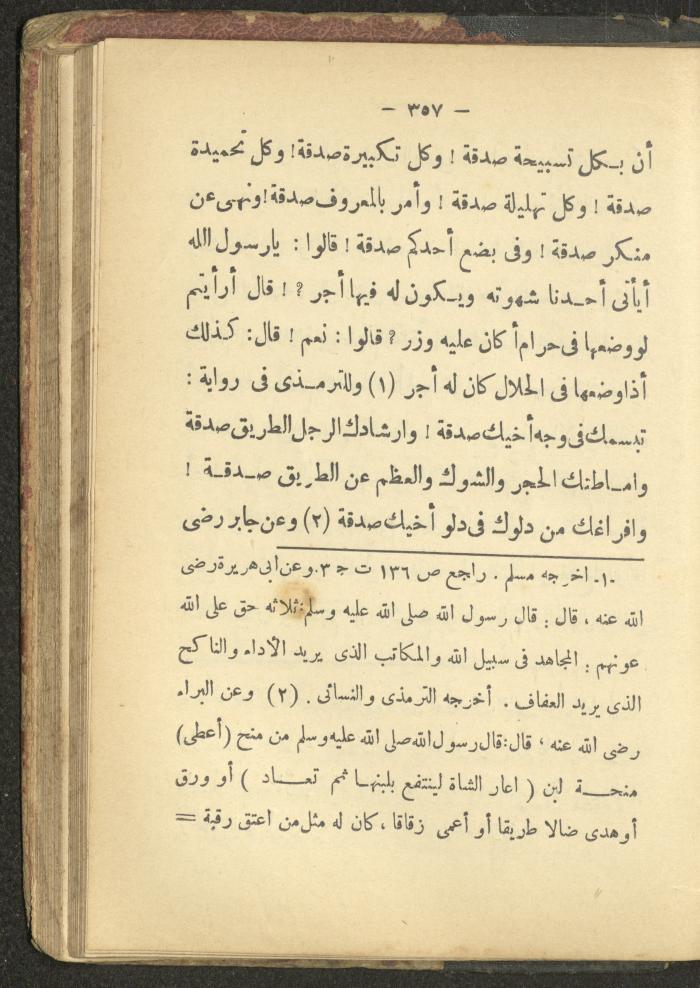 — ٣٥٧ —
أن بكل تسبيحة صدقة ! وكل تكبيرة صدقة ! وكل تحميدة
صدقة ! وكل تهليلة صدقة ! وأمر بالمعروف صدقة ! ونهى عن
منكر صدقة ! وفى بضع أحدكم صدقة ! قالوا : يارسول الله
أيأتى أحدنا شهوته ويكون له فيها أجر ? ! قال أرأيتم
لو وضعها فى حرام أ كان عليه وزر ? قالوا : نعم ! قال : كذلك
أذا وضعها فى الحلال كان له أجر (١) وللترمذى فى رواية :
تبسمك فى وجه أخيك صدقة ! وارشادك الرجل الطريق صدقة
وامـاطتك الحجر والشوك والعظم عن الطريق صـدقـة !
وافراغك من دلوك فى دلو أخيك صدقة (٢) وعن جابر رضى
-١- اخرجه مسلم . راجع ص ١٣٦ ت ج ٣. وعن أبى هريرة رضى
الله عنه ، قال : قال رسول الله صلى الله عليه وسلم : ثلاثه حق على الله
عونهم : المجاهد فى سبيل الله والمكاتب الذى يريد الأداء والناكح
الذى يريد العفاف . أخرجه الترمذى والنسائى . (٢) وعن البراء
رضى الله عنه ، قال : قال رسول الله صلى الله عليه وسلم من منح (أعطى)
منحـــة لبن ( اعار الشاة لينتفع بلبنهـا ثم تعـــاد ) أو ورق
أوهدى ضالا طريقا أو أعمى زقاقا ، كان له مثل من اعتق رقبة =